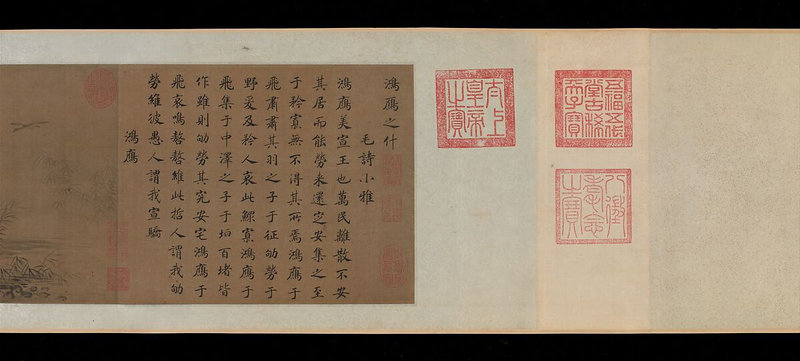 八徵耄念之寶
五福五代堂古稀天子寶
太上皇帝之寶
鴻鴈之什
毛詩小雅
鴻鴈美宣王也萬民離散不安
其居而能勞來還定安集之至
于矜寡無不得其所焉鴻鴈于
飛肅肅其羽之子于征劬勞于
野爰及矜人哀此鰥寡鴻鴈于
飛集于中澤之子于垣百堵皆
作雖則劬勞其究安宅鴻鴈于
飛哀鳴嗸嗸維此哲人謂我劬
勞維彼愚人謂我宣驕
鴻鴈